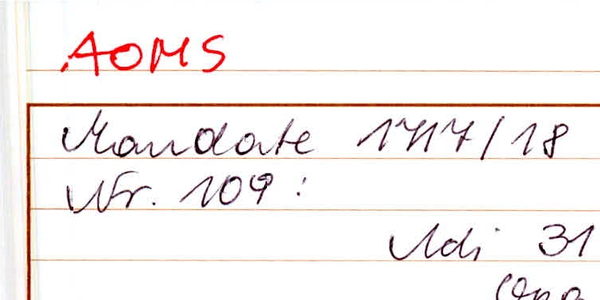 AOMS
Mandate 1717/18
Nr. 109:
Adi 31